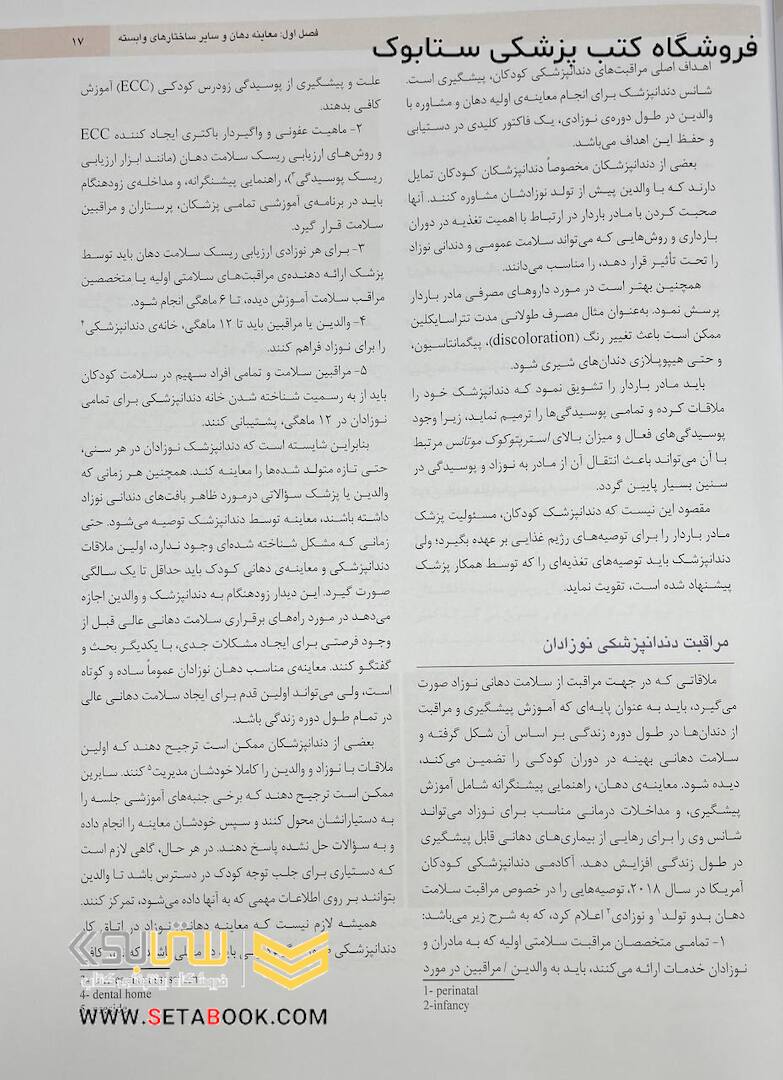 فصل اول: معاینه دهان و سایر ساختارهای وابسته
۱۷
فروشگاه کتب پزشکی ستابوک
اهداف اصلی مراقبت‌های دندانپزشکی کودکان، پیشگیری است.
شانس دندانپزشک برای انجام معاینه‌ی اولیه دهان و مشاوره با
والدین در طول دوره‌ی نوزادی، یک فاکتور کلیدی در دستیابی
و حفظ این اهداف می‌باشد.
بعضی از دندانپزشکان مخصوصاً دندانپزشکان کودکان تمایل
دارند که با والدین پیش از تولد نوزادشان مشاوره کنند. آنها
صحبت کردن با مادر باردار در ارتباط با اهمیت تغذیه در دوران
بارداری و روش‌هایی که می‌تواند سلامت عمومی و دندانی نوزاد
را تحت تأثیر قرار دهد، را مناسب می‌دانند.
همچنین بهتر است در مورد داروهای مصرفی مادر باردار
پرسش نمود. به‌عنوان مثال مصرف طولانی مدت تتراسایکلین
ممکن است باعث تغییر رنگ (discoloration)، پیگمانتاسیون،
و حتی هیپوپلازی دندان‌های شیری شود.
باید مادر باردار را تشویق نمود که دندانپزشک خود را
ملاقات کرده و تمامی پوسیدگی‌ها را ترمیم نماید، زیرا وجود
پوسیدگی‌های فعال و میزان بالای استرپتوکوک موتانس مرتبط
با آن می‌تواند باعث انتقال آن از مادر به نوزاد و پوسیدگی در
سنین بسیار پایین گردد.
مقصود این نیست که دندانپزشک کودکان، مسئولیت پزشک
مادر باردار را برای توصیه‌های رژیم غذایی بر عهده بگیرد؛ ولی
دندانپزشک باید توصیه‌های تغذیه‌ای را که توسط همکار پزشک
پیشنهاد شده است، تقویت نماید.
مراقبت دندانپزشکی نوزادان
ملاقاتی که در جهت مراقبت از سلامت دهانی نوزاد صورت
می‌گیرد، باید به عنوان پایه‌ای که آموزش پیشگیری و مراقبت
از دندان‌ها در طول دوره زندگی بر اساس آن شکل گرفته و
سلامت دهانی بهینه در دوران کودکی را تضمین می‌کند،
دیده شود. معاینه‌ی دهان، راهنمایی پیشنگرانه شامل آموزش
پیشگیری، و مداخلات درمانی مناسب برای نوزاد می‌تواند
شانس وی را برای رهایی از بیماری‌های دهانی قابل پیشگیری
در طول زندگی افزایش دهد. آکادمی دندانپزشکی کودکان
آمریکا در سال ۲۰۱۸، توصیه‌هایی را در خصوص مراقبت سلامت
دهان بدو تولد۱ و نوزادی۲ اعلام کرد، که به شرح زیر می‌باشد:
۱- تمامی متخصصان مراقبت سلامتی اولیه که به مادران و
نوزادان خدمات ارائه می‌کنند، باید به والدین / مراقبین در مورد
1- perinatal
2-infancy
علت و پیشگیری از پوسیدگی زودرس کودکی (ECC) آموزش
کافی بدهند.
۲- ماهیت عفونی و واگیردار باکتری ایجاد کننده ECC
و روش‌های ارزیابی ریسک سلامت دهان (مانند ابزار ارزیابی
ریسک پوسیدگی۳)، راهنمایی پیشنگرانه، و مداخله‌ی زودهنگام
باید در برنامه‌ی آموزشی تمامی پزشکان، پرستاران و مراقبین
سلامت قرار گیرد.
۳- برای هر نوزادی ارزیابی ریسک سلامت دهان باید توسط
پزشک ارائه دهنده‌ی مراقبت‌های سلامتی اولیه یا متخصصین
مراقب سلامت آموزش دیده، تا ۶ ماهگی انجام شود.
۴- والدین یا مراقبین باید تا ۱۲ ماهگی، خانه‌ی دندانپزشکی۴
را برای نوزاد فراهم کنند.
۵- مراقبین سلامت و تمامی افراد سهیم در سلامت کودکان
باید از به رسمیت شناخته شدن خانه دندانپزشکی برای تمامی
نوزادان در ۱۲ ماهگی، پشتیبانی کنند.
بنابراین شایسته است که دندانپزشک نوزادان در هر سنی،
حتی تازه متولد شده‌ها را معاینه کند. همچنین هر زمانی که
والدین یا پزشک سؤالاتی درمورد ظاهر بافت‌های دندانی نوزاد
داشته باشند، معاینه توسط دندانپزشک توصیه می‌شود. حتی
زمانی که مشکل شناخته شده‌ای وجود ندارد، اولین ملاقات
دندانپزشکی و معاینه‌ی دهانی کودک باید حداقل تا یک سالگی
صورت گیرد. این دیدار زودهنگام به دندانپزشک و والدین اجازه
می‌دهد در مورد راه‌های برقراری سلامت دهانی عالی قبل از
وجود فرصتی برای ایجاد مشکلات جدی، با یکدیگر بحث و
گفتگو کنند. معاینه‌ی مناسب دهان نوزادان عموماً ساده و کوتاه
است، ولی می‌تواند اولین قدم برای ایجاد سلامت دهانی عالی
در تمام طول دوره زندگی باشد.
بعضی از دندانپزشکان ممکن است ترجیح دهند که اولین
ملاقات با نوزاد و والدین را کاملا خودشان مدیریت۵ کنند. سایرین
ممکن است ترجیح دهند که برخی جنبه‌های آموزشی جلسه را
به دستیارانشان محول کنند و سپس خودشان معاینه را انجام داده
و به سؤالات حل نشده پاسخ دهند. در هر حال، گاهی لازم است
که دستیاری برای جلب توجه کودک در دسترس باشد تا والدین
بتوانند بر روی اطلاعات مهمی که به آنها داده می‌شود، تمرکز کنند.
همیشه لازم نیست که معاینه دهان نوزاد در اتاق کار
دندانپزشکی
4- dental home
ستابوک
فروشگاه اینترنتی کتاب
WWW.SETABOOK.COM